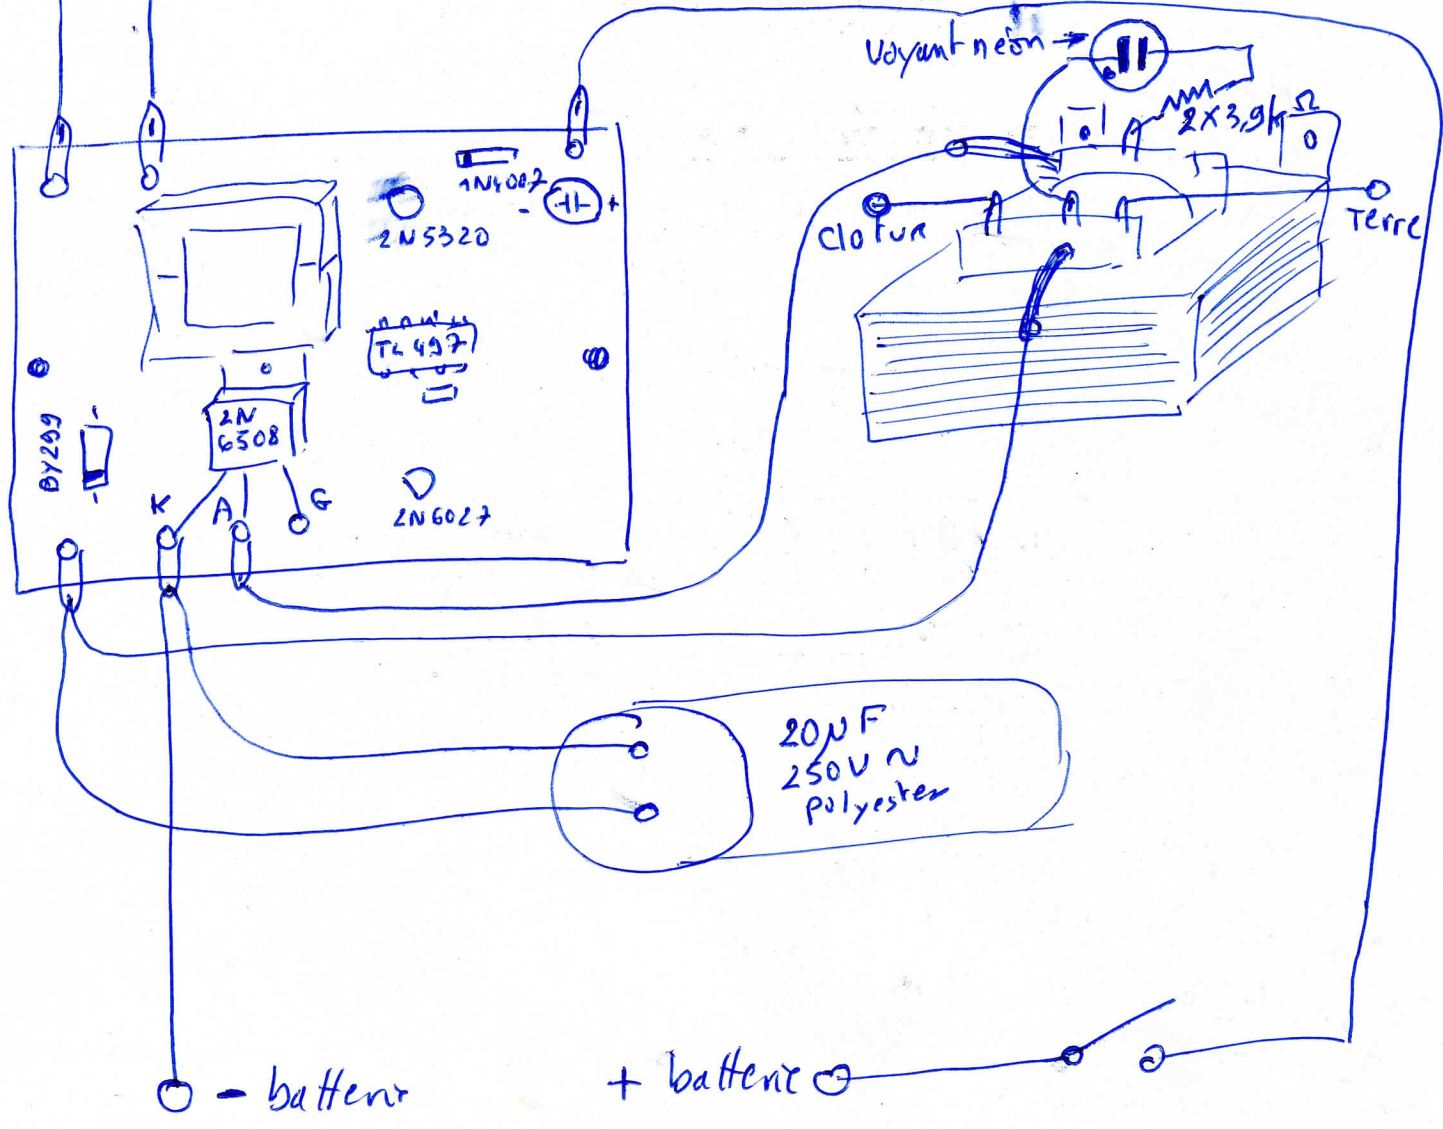 Voyant néon
2x3,9k Ω
1N4007
- +
2N5320
Clotur
Terre
TL 497
2N
6508
BY299
K
A
G
2N6027
20µF
250V ~
polyester
- batterie
+ batterie